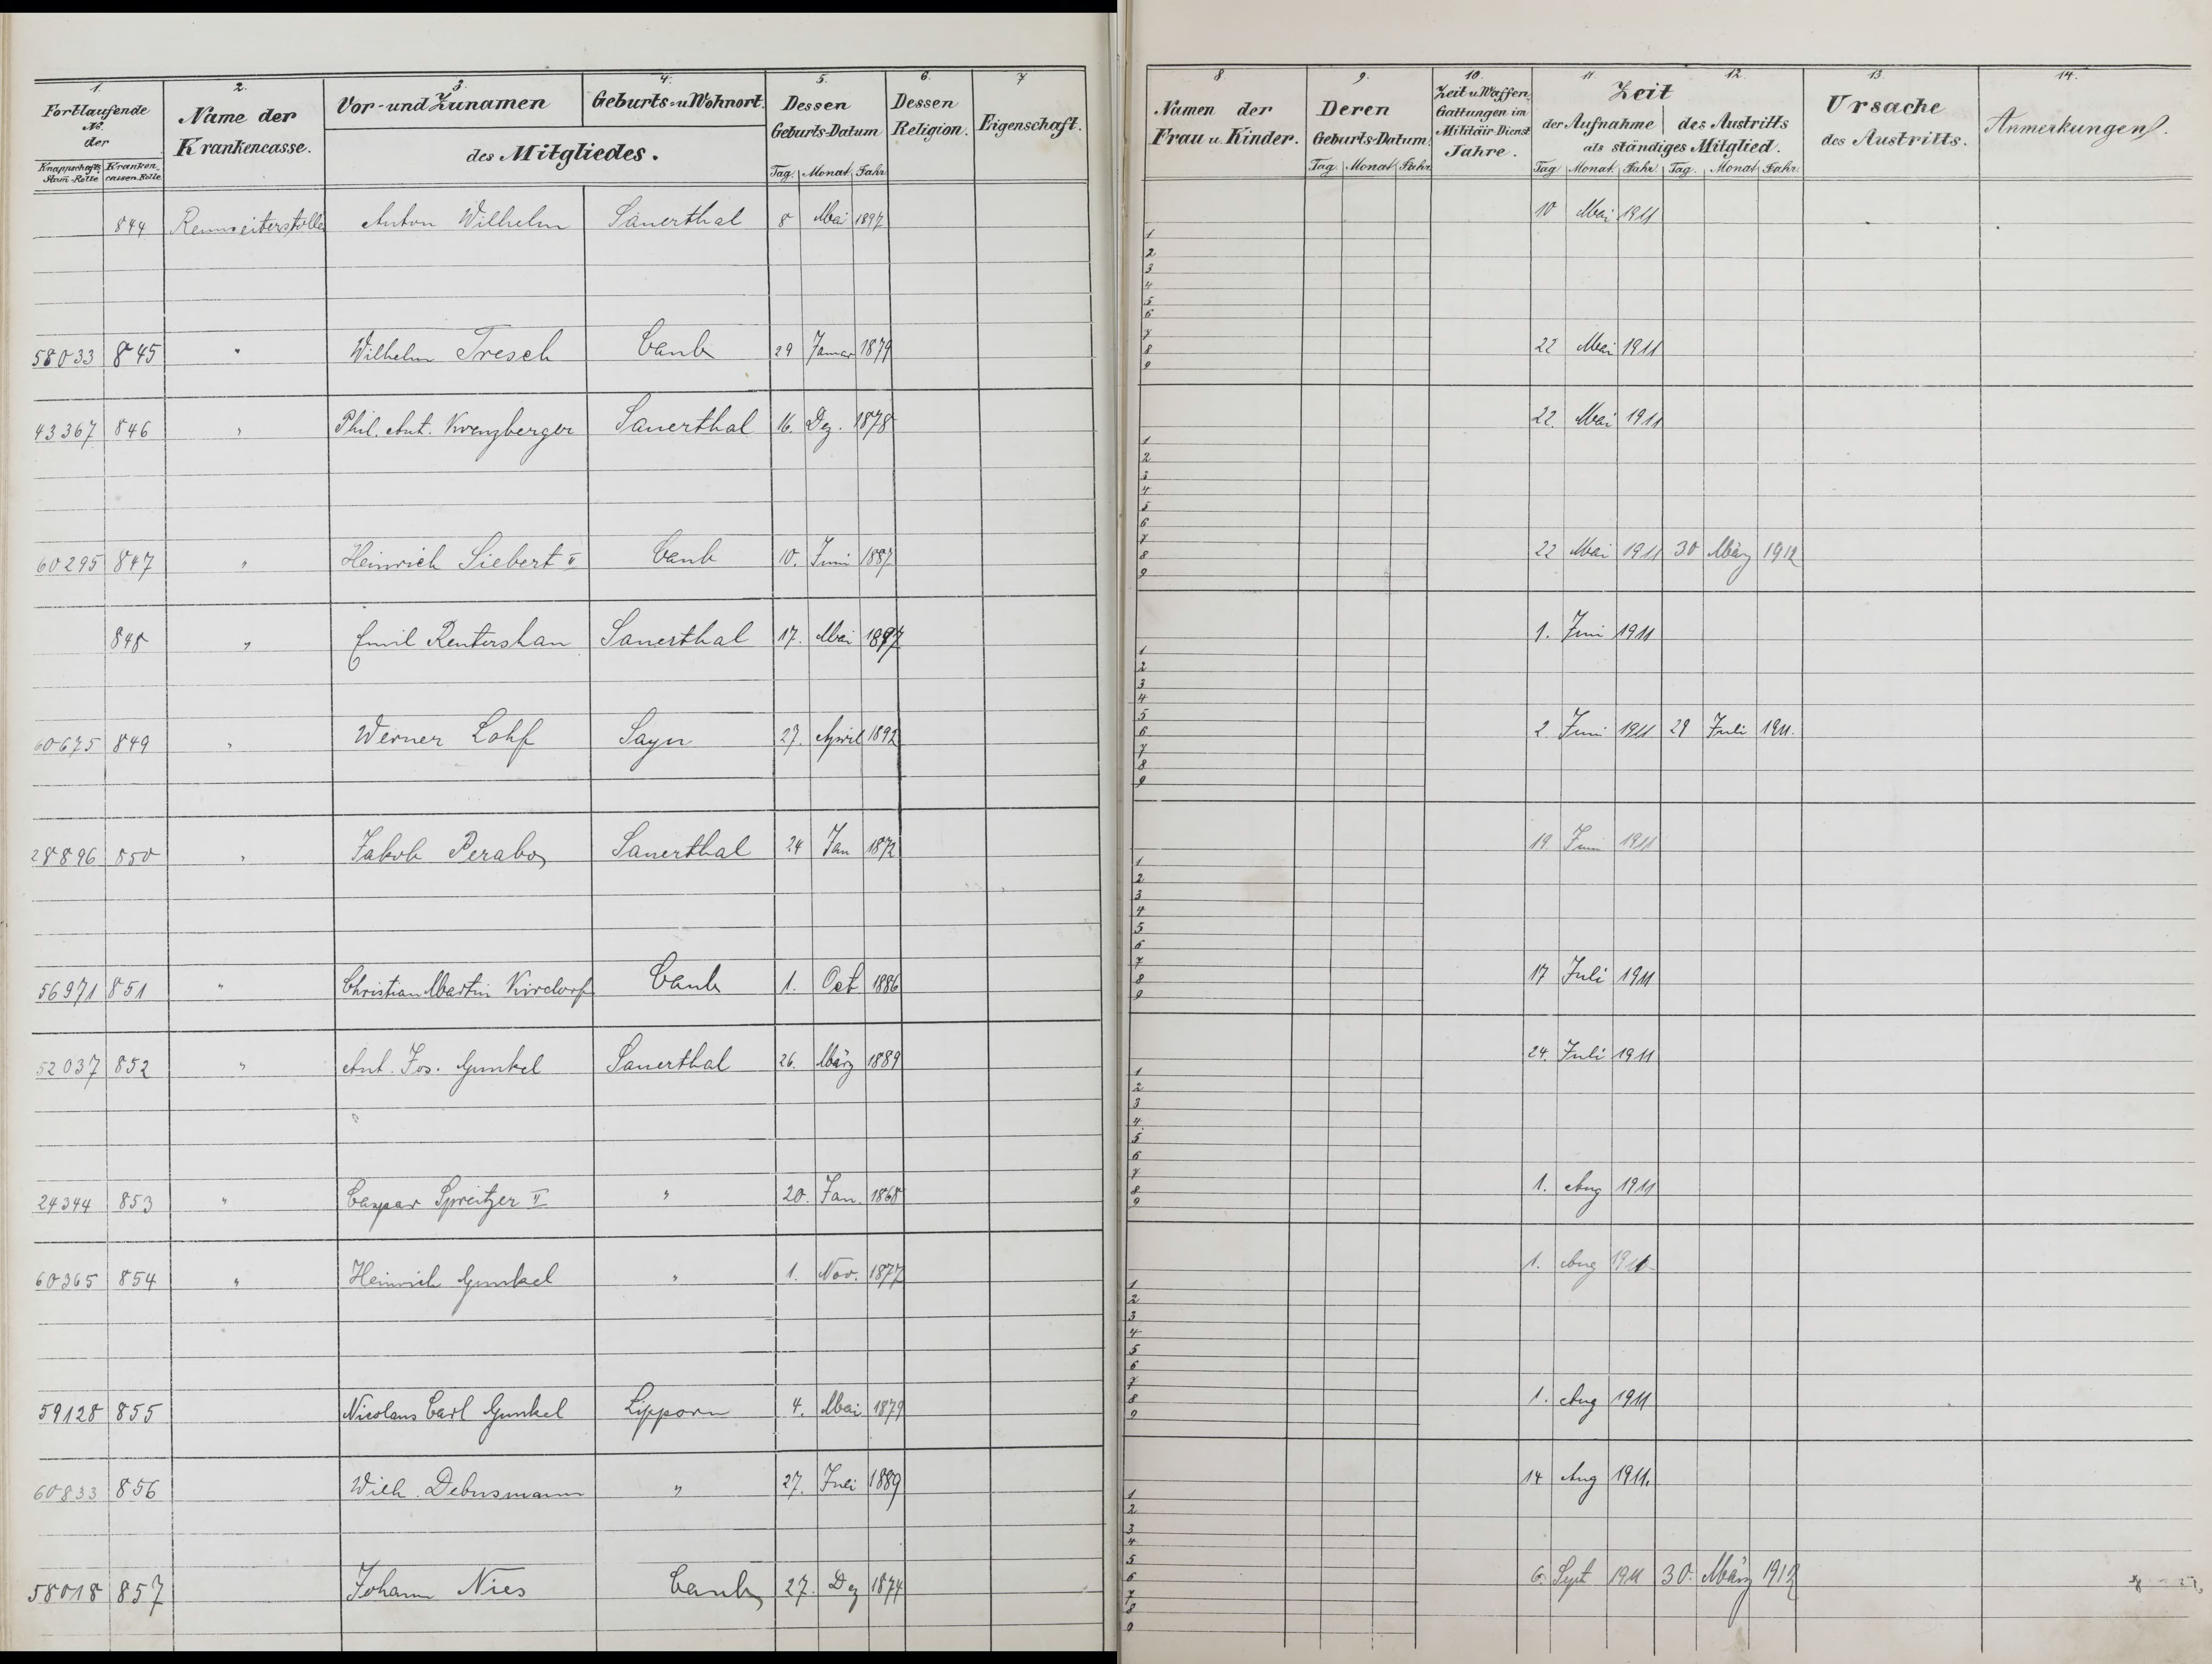 1. 2. 3. 4. 5. 6. 7 8 9. 10. 11. 12. 13. 14.
Fortlaufende No. der
Knappschafts Stam-Rolle Kranken-cassen-Rolle
Name der Krankencasse.
Vor- und Zunamen Geburts- u Wohnort.
des Mitgliedes.
Dessen Geburts-Datum
Tag. Monat Jahr
Dessen Religion.
Eigenschaft.
Namen der Frau u. Kinder.
Deren Geburts-Datum.
Tag. Monat Jahr
Zeit u. Waffen Gattungen im Militair Dienst Jahre.
Zeit
der Aufnahme des Austritts
als ständiges Mitglied.
Tag Monat Jahr Tag. Monat Jahr
Ursache des Austritts.
Anmerkungen.
844 Anton Wilhelm Sauerthal 8 Mai 1897 10 Mai 1911
1
2
3
4
5
6
7
8
9
58033 845 " Wilhelm Tresch Caub 29 Januar 1879 22 Mai 1911
43367 846 " Phil. Ant. Krenzberger Sauerthal 16. Dez. 1878 22. Mai 1911
1
2
3
4
5
6
7
8
9
60295 847 " Heinrich Siebert II Caub 10. Juni 1887 22 Mai 1911 30 März 1912
848 " Emil Rentershan Sauerthal 17. Mai 1897 1. Juni 1911
1
2
3
4
5
6
7
8
9
60675 849 " Werner Lohf Sayn 27. April 1892 2 Juni 1911 29 Juli 1911.
28896 850 " Jakob Perabo Sauerthal 24 Jan 1872 19 Juni 1911
1
2
3
4
5
6
7
8
9
56971 851 " Christian Martin Kirdorf Caub 1. Oct 1886 17 Juli 1911
52037 852 " Ant. Jos. Gunkel Sauerthal 26. März 1889 24. Juli 1911
1
2
3
4
5
6
7
8
9
24344 853 " Caspar Spreitzer II " 20. Jan. 1868 1. Aug 1911
60365 854 " Heinrich Gunkel " 1. Nov. 1877 1. Aug 1911
1
2
3
4
5
6
7
8
9
59128 855 Nicolaus Carl Gunkel Lipporn 4. Mai 1879 1. Aug 1911
60833 856 Wilh. Debusmann " 27. Juli 1889 14 Aug 1911.
1
2
3
4
5
6
7
8
9
58018 857 Johann Nies Caub 27. Dez 1874 6. Sept 1911 30. März 1912